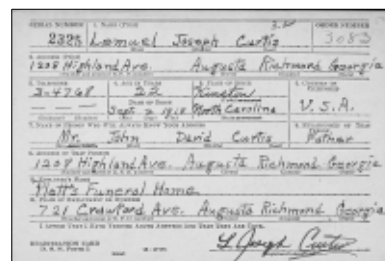 SERIAL NUMBER 1. NAME (Print) ORDER NUMBER
2325 Lemuel Joseph Curtis 3083
2. ADDRESS (Print)
1208 Highland Ave. Augusta Richmond Georgia
3. TELEPHONE 4. AGE IN YEARS 5. PLACE OF BIRTH 6. COUNTRY OF CITIZENSHIP
3-4768 22 Kinston
DATE OF BIRTH
— — — Sept. 2 1918 North Carolina U.S.A.
7. NAME OF PERSON WHO WILL ALWAYS KNOW YOUR ADDRESS 8. RELATIONSHIP OF THAT PERSON
Mr. John David Curtis Father
9. ADDRESS OF THAT PERSON
1208 Highland Ave. Augusta Richmond Georgia
10. EMPLOYER'S NAME
Platt's Funeral Home
11. PLACE OF EMPLOYMENT OR BUSINESS
721 Crawford Ave. Augusta Richmond Georgia
I AFFIRM THAT I HAVE VERIFIED ABOVE ANSWERS AND THAT THEY ARE TRUE.
REGISTRATION CARD
D. S. S. FORM 1
L. Joseph Curtis